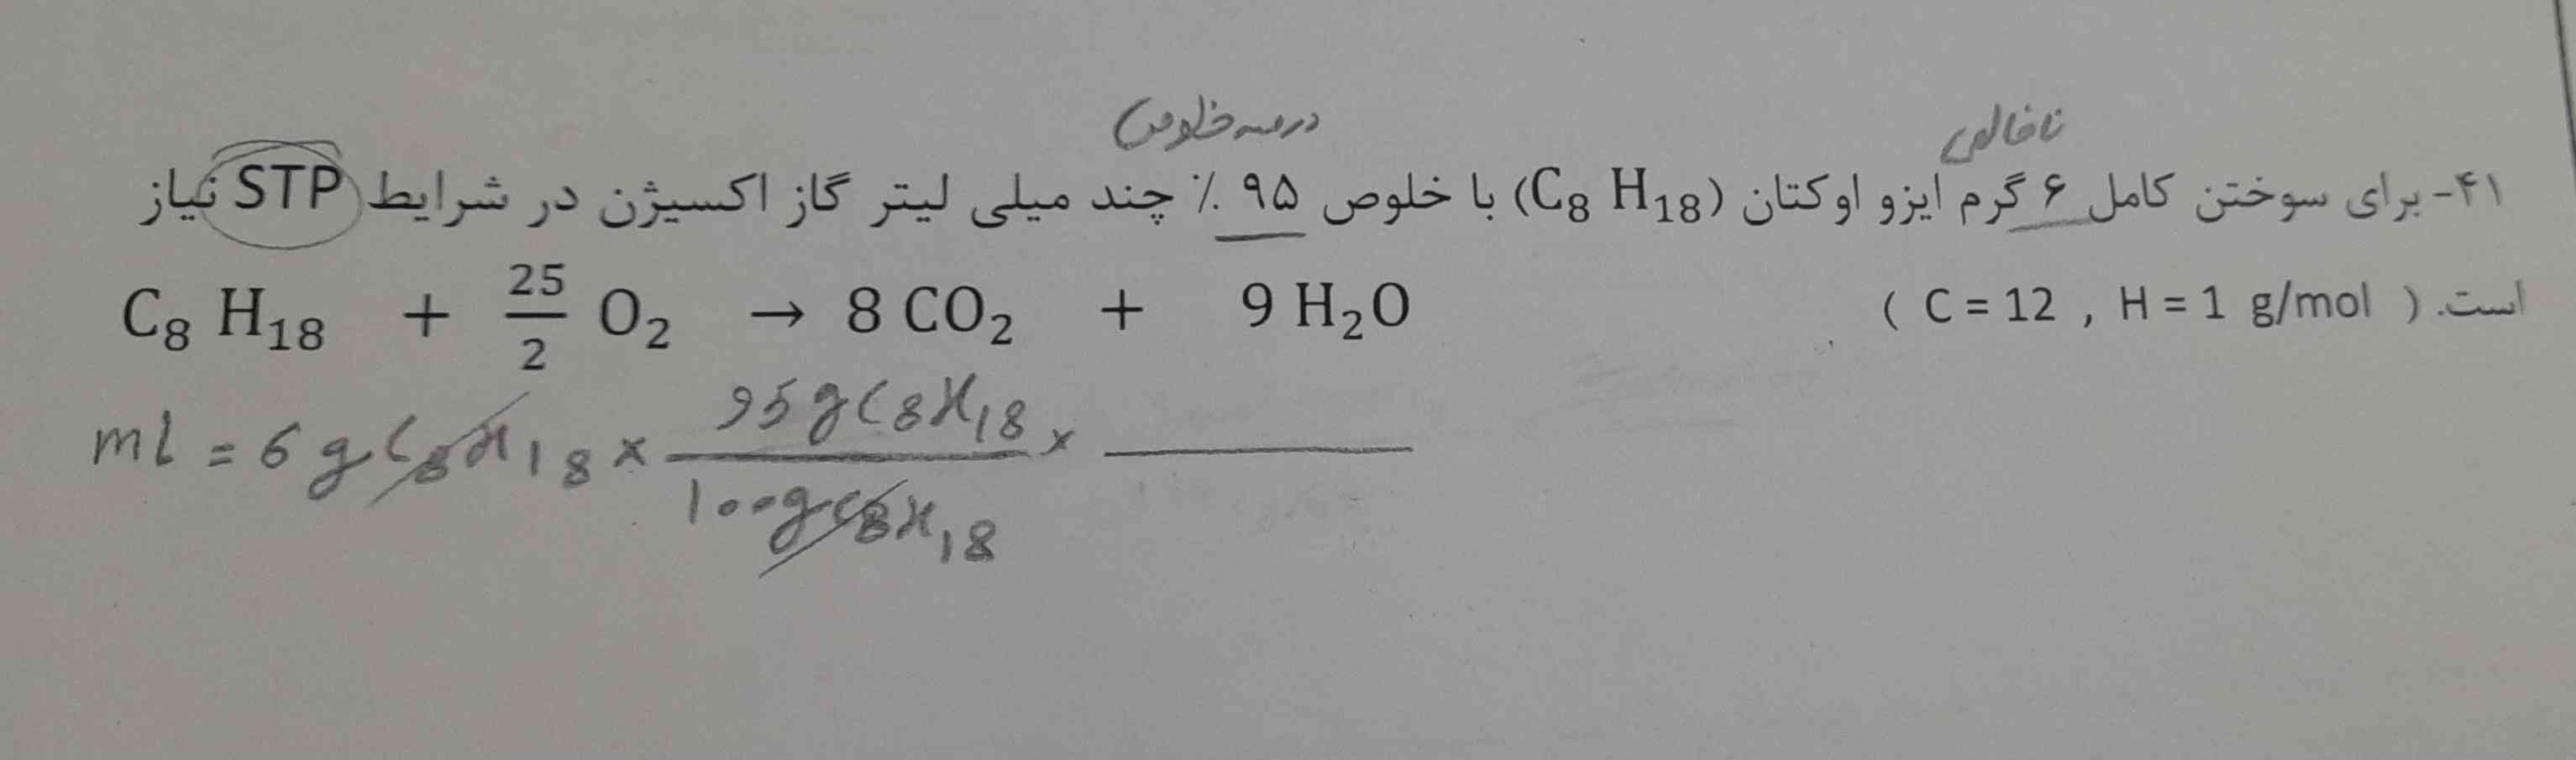 ناخالص درصد خلوص
۴۱- برای سوختن کامل ۶ گرم ایزو اوکتان (C₈ H₁₈) با خلوص ۹۵ ٪ چند میلی لیتر گاز اکسیژن در شرایط STP نیاز
است. ( C = 12 , H = 1 g/mol )
C₈ H₁₈ + 25/2 O₂ → 8 CO₂ + 9 H₂O
ml = 6 g C₈H₁₈ × 95 g C₈H₁₈ / 100 g C₈H₁₈ × ــــــ